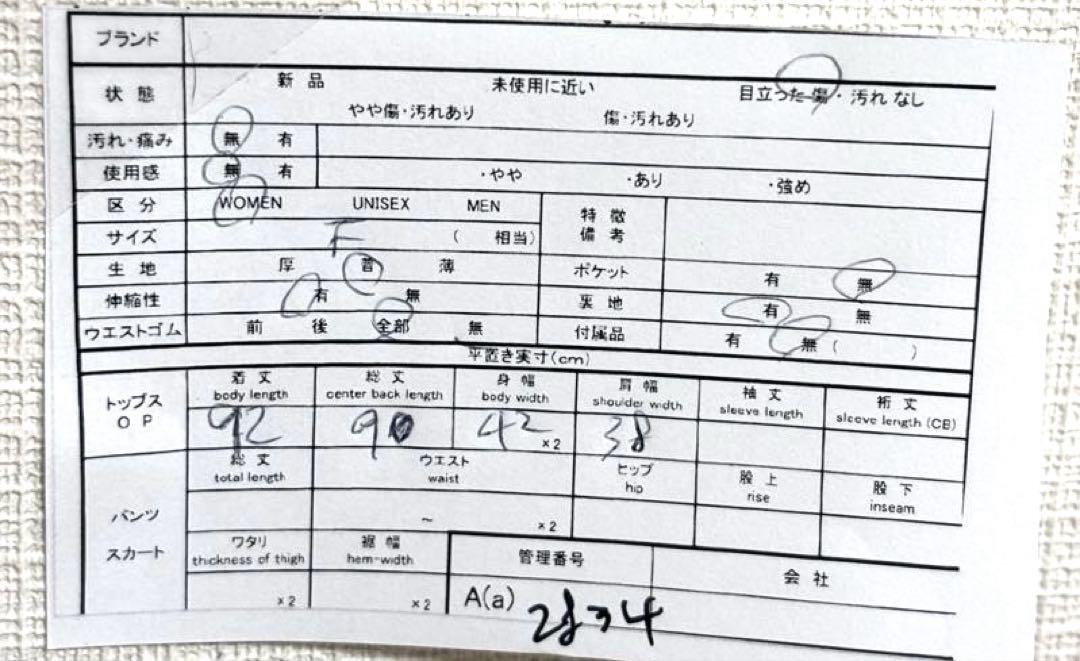 ブランド
状態 新品 未使用に近い 目立った傷・汚れなし
やや傷・汚れあり 傷・汚れあり
汚れ・痛み 無 有
使用感 無 有 ・やや ・あり ・強め
区分 WOMEN UNISEX MEN 特徴
備考
サイズ F ( 相当)
生地 厚 普 薄 ポケット 有 無
伸縮性 有 無 裏地 有 無
ウエストゴム 前 後 全部 無 付属品 有 無 ( )
平置き実寸(cm)
トップス
OP
着丈 総丈 身幅 肩幅 袖丈 裄丈
body length center back length body width shoulder width sleeve length sleeve length (CB)
92 90 42 ×2 38
総丈 ウエスト ヒップ 股上 股下
total length waist hip rise inseam
パンツ
スカート
~ ×2
ワタリ 裾幅 管理番号 会社
thickness of thigh hem-width
×2 ×2 A(a)